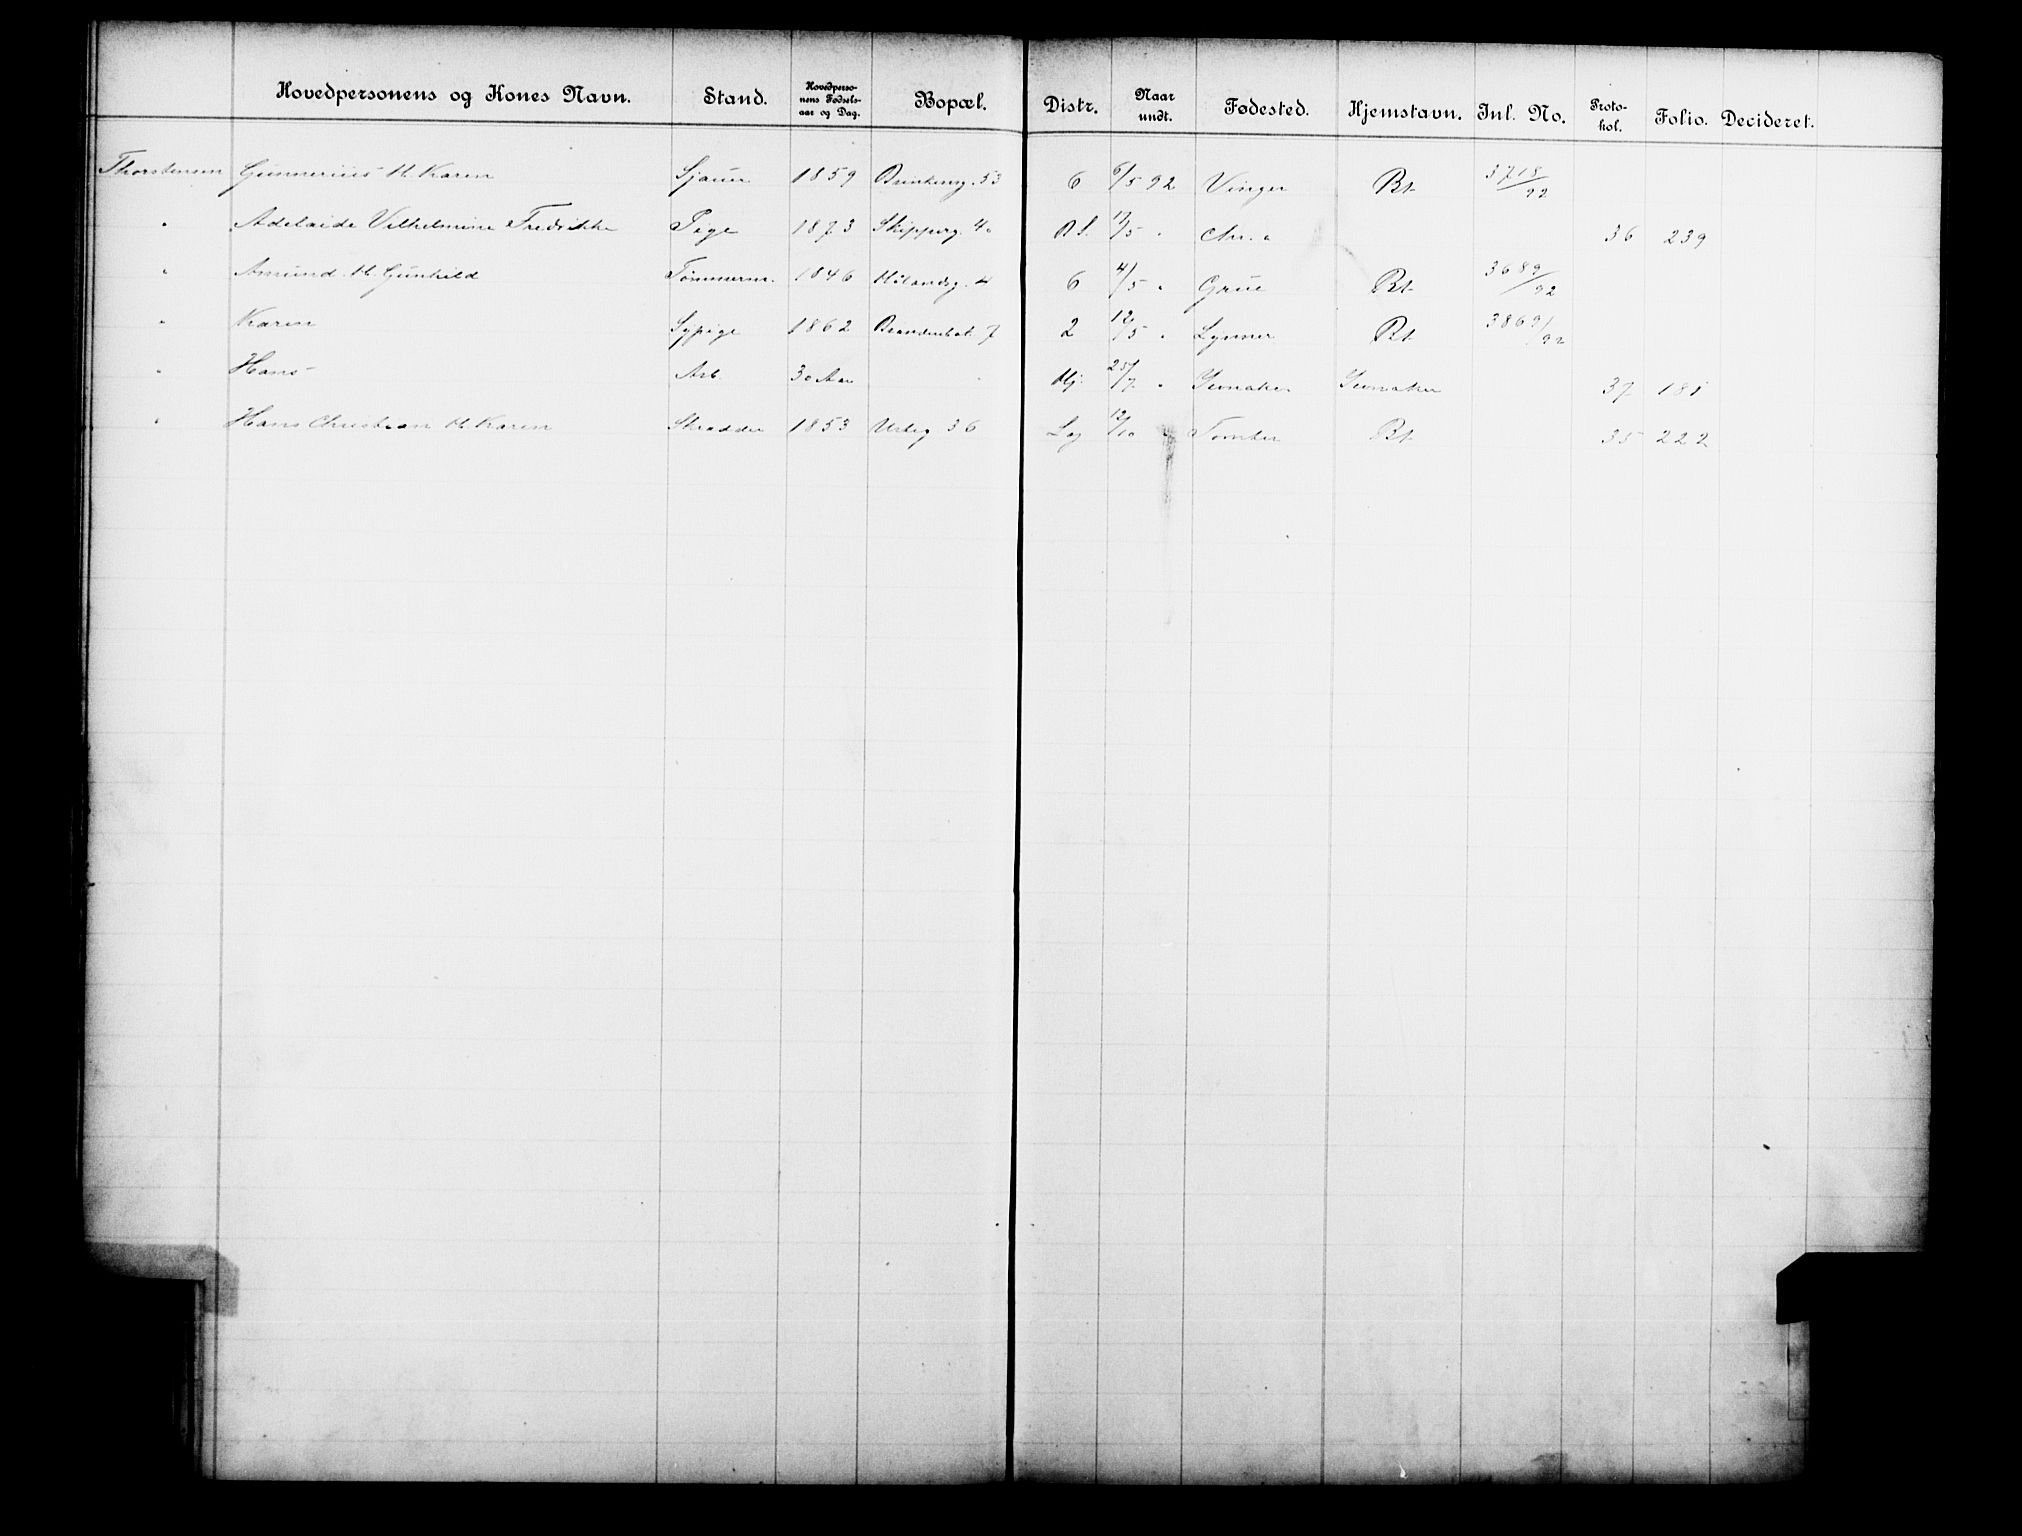 Hovedpersonens og Kones Navn. Stand. Hovedperso-nens Fødsels-aar og Dag. Bopæl. Distr. Naar undt. Fødested. Hjemstavn. Inl. No. Proto-kol. Folio. Decideret.
Thorstensen Gunnerius M. Karen Sjauer 1859 Brinkeng. 53 6 6/5 92 Vinger Bt 3718/92
" Adelaide Vilhelmine Fredrikke Pige 1873 Skipperg. 4 11/5 " Chr.a 36 239
" Amund M. Gunhild Tømmerm. 1846 Hølandsg. 4 6 4/5 " Grue Bt 3689/92
" Karen Sypige 1862 7 2 12/5 " Lynner Bt 3869/92
" Hans Arb. 30 Aar Hj. 25/7 " Jevnaker Jevnaker 37 181
" Hans Christian M. Karen Skrædder 1853 Urteg 36 12/10 " Tomter Bt 35 222